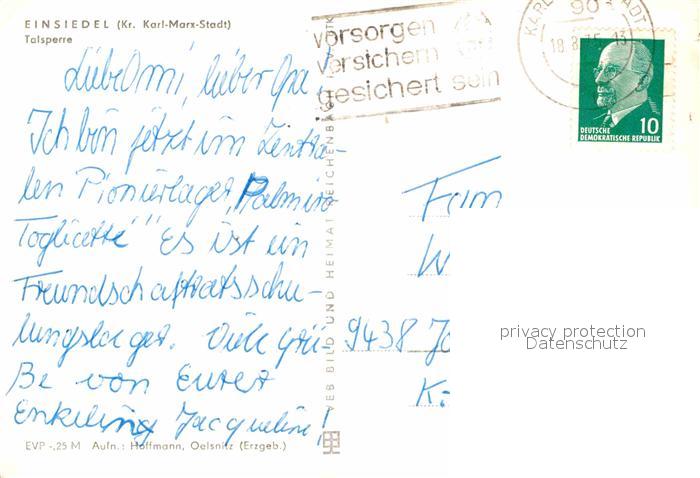 EINSIEDEL (Kr. Karl-Marx-Stadt)
Talsperre
vorsorgen
versichern
gesichert sein
90
18.8.
13
10
DEUTSCHE
DEMOKRATISCHE REPUBLIK
Liebe Omi, lieber Opa!
Ich bin jetzt im Zentra-
len Pionierlager „Palmiro
Toglicatti" Es ist ein
Freundschaftratsschu-
lungslager. Viele Grü-
ße von Eurer
Enkeling Jacqueline!
Fam
W
9438 Jo
K.
privacy protection
Datenschutz
VEB BILD UND HEIMAT REICHENBACH
EVP -,25 M Aufn.: Hoffmann, Oelsnitz (Erzgeb.)